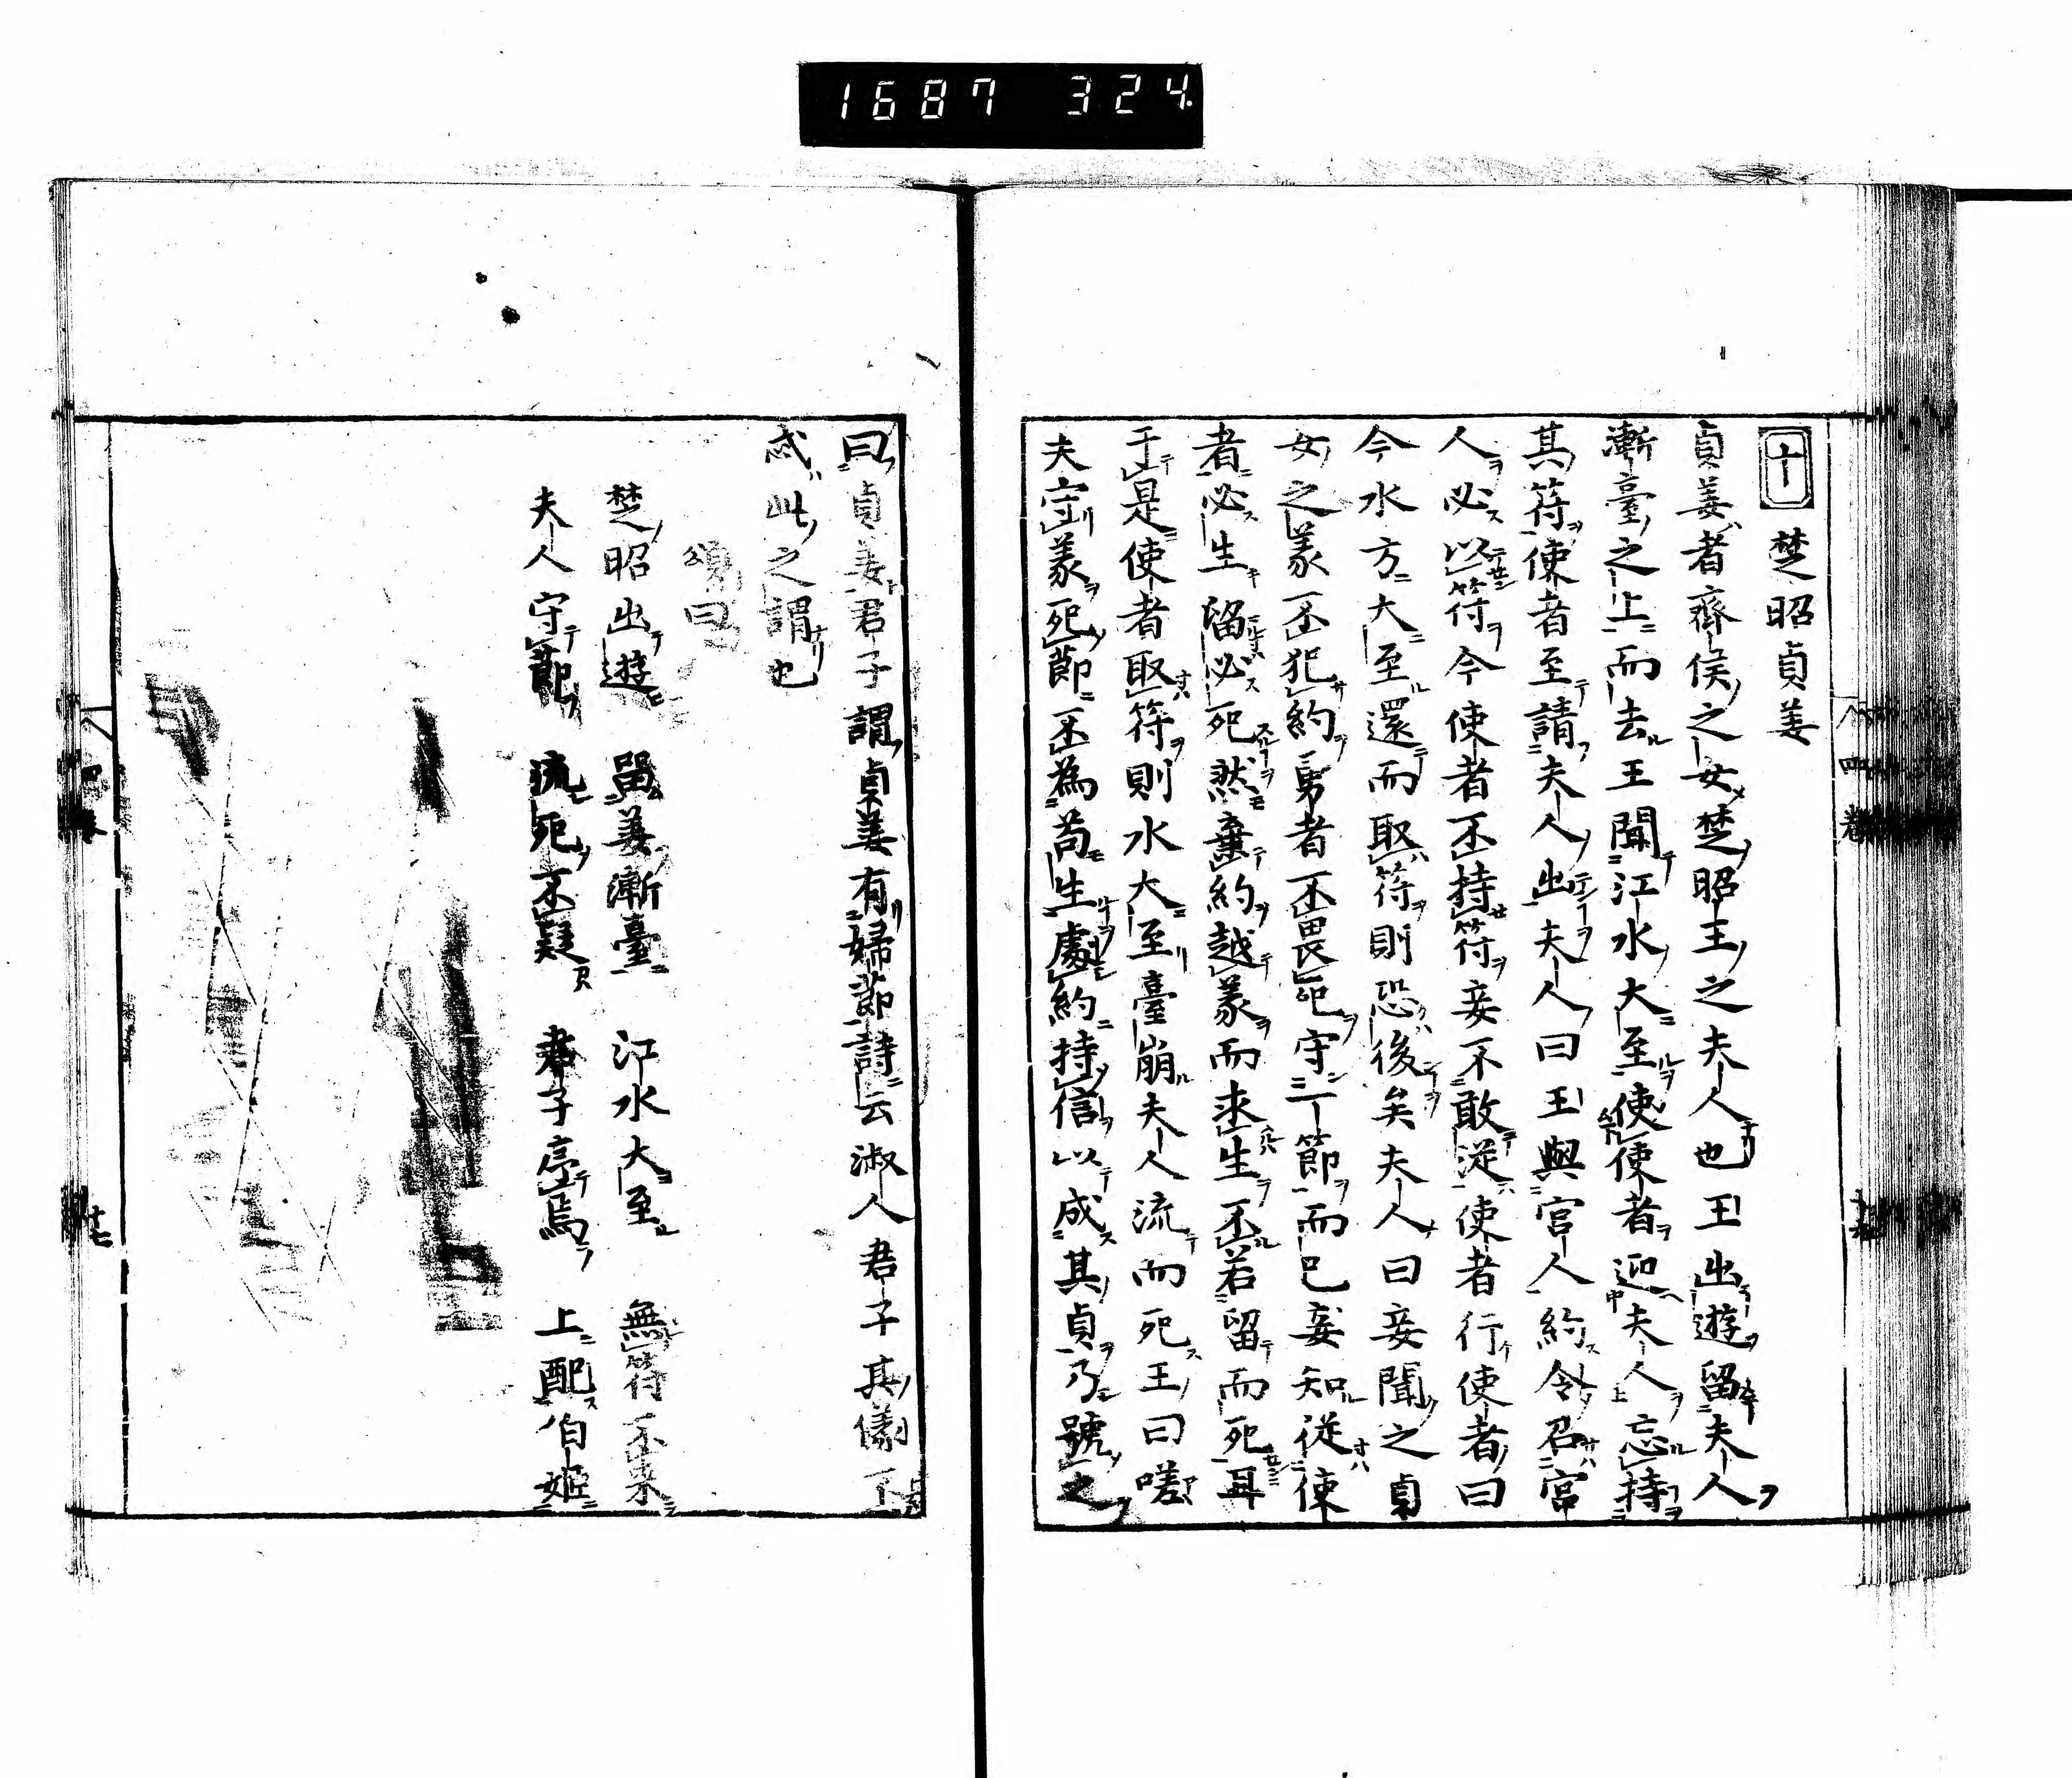 1687 324.
十 楚昭貞姜
貞姜者齊侯之女楚昭王之夫人也王出遊留夫人
漸臺之上而去王聞江水大至使使者迎夫人忘持
其符使者至請夫人出夫人曰王與宮人約令召宮
人必以符今使者不持符妾不敢從使者行使者曰
今水方大至還而取符則恐後矣夫人曰妾聞之貞
女之義不犯約勇者不畏死守一節而已妾知從使
者必生留必死然棄約越義而求生不若留而死耳
于是使者取符則水大至臺崩夫人流而死王曰嗟
夫守義死節不為苟生處約持信以成其貞乃號之
曰貞姜君子謂貞姜有婦節詩云淑人君子其儀不
忒此之謂也
頌曰
楚昭出遊 留姜漸臺 江水大至 無符不來
夫人守節 流死不疑 君子序焉 上配伯姬